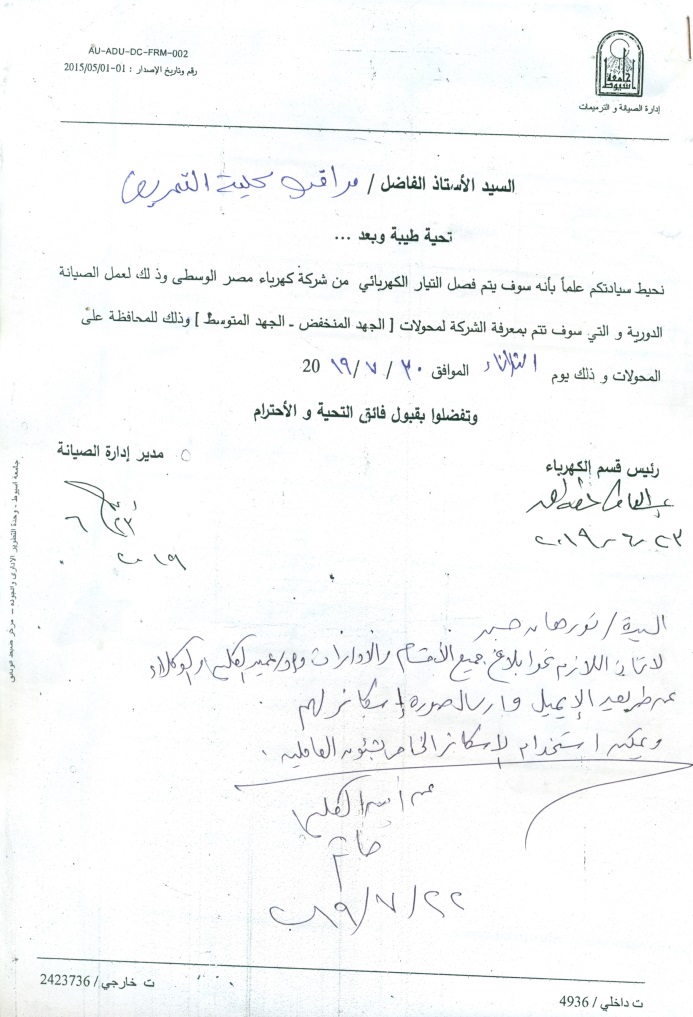 AU-ADU-DC-FRM-002
رقم وتاريخ الإصدار : 01-2015/05/01
جامعة أسيوط
إدارة الصيانة و الترميمات
السيد الأستاذ الفاضل / مراقب كلية التمريض
تحية طيبة وبعد ...
نحيط سيادتكم علماً بأنه سوف يتم فصل التيار الكهربائي من شركة كهرباء مصر الوسطى وذ لك لعمل الصيانة
الدورية و التي سوف تتم بمعرفة الشركة لمحولات [ الجهد المنخفض ـ الجهد المتوسط ] وذلك للمحافظة على
المحولات و ذلك يوم الثلاثاء الموافق ٣٠ / ٧ / ١٩ 20
وتفضلوا بقبول فائق التحية و الأحترام
رئيس قسم الكهرباء
مدير إدارة الصيانة
٢٣ـ ٦ـ ٢٠١٩
٢٣ / ٦
٢٠١٩
جامعة اسيوط - وحدة التطوير الادارى والجوده
السيدة / نورهان
لاتخاذ اللازم نحو ابلاغ جميع الأقسام والادارات عميد الكلية والوكلاء
عن طريق الإيميل وارسال صورة إسكانر لهم
ويمكن استخدام الاسكانر الخاص بشئون العاملين .
عن أمين الكلية
٢٢ / ٧ / ٢٠١٩
ت داخلي / 4936
ت خارجي / 2423736